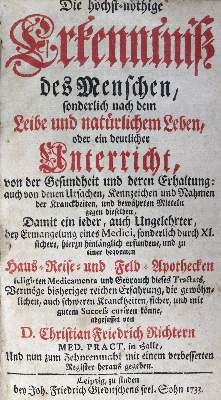 Die höchst-nöthige
Erkenntniß
des Menschen,
sonderlich nach dem
Leibe und natürlichem Leben,
oder ein deutlicher
Unterricht,
von der Gesundheit und deren Erhaltung:
auch von denen Ursachen, Kennzeichen und Nahmen
der Kranckheiten, und bewährten Mitteln
gegen dieselben,
Damit ein ieder, auch Ungelehrter,
bey Ermangelung eines Medici, sonderlich durch XI.
sichere, hierzu hinlänglich erfundene, und zu
einer bequemen
Haus- Reise- und Feld- Apothecken
Medicamenta und Gebrauch dieses Tractats,
Vermöge bisheriger reichen Erfahrung, die gewöhn-
lichen, auch schweren Kranckheiten, sicher, und mit
gutem Success curiren könne,
aufgesetzt von
D. Christian Friedrich Richtern
MED. PRACT. in Halle,
Und nun zum Zehnten mahl mit einem verbesserten
Register heraus gegeben.
Leipzig, zu finden
bey Joh. Friedrich Gleditschens seel. Sohn 1733.